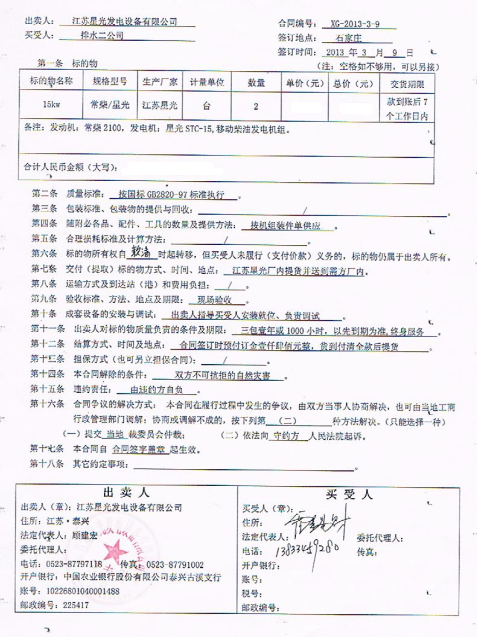 出卖人： 江苏星光发电设备有限公司 合同编号： XG-2013-3-9
买受人： 排水二公司 签订地点： 石家庄
签订时间： 2013 年 3 月 9 日
第一条 标的物 （注：空格如不够用，可以另接）
标的物名称 规格型号 生产厂家 计量单位 数量 单价（元） 总价（元） 交货期限
15kw 常柴/星光 江苏星光 台 2 款到账后 7 个工作日内
备注：发动机：常柴 2100，发电机：星光 STC-15,移动柴油发电机组。
合计人民币金额（大写）：
第二条 质量标准： 按国标 GB2820-97 标准执行 。
第三条 包装标准、包装物的提供与回收： / 。
第四条 随附必备品、配件、工具的数量及提供方法： 按机组装件单供应 。
第五条 合理损耗标准及计算方法： / 。
第六条 标的物所有权自 款清 时起转移，但买受人未履行（支付价款）义务的，标的物仍属于出卖人所有。
第七条 交付（提取）标的物方式、时间、地点： 江苏星光厂内提货并送到需方厂内 。
第八条 运输方式及到达站（港）和费用负担： / 。
第九条 验收标准、方法、地点及期限： 现场验收 。
第十条 成套设备的安装与调试： 出卖人指导买受人安装就位、负责调试 。
第十一条 出卖人对标的物质量负责的条件及期限： 三包壹年或 1000 小时，以先到期为准,终身服务 。
第十二条 结算方式、时间及地点： 合同签订时预付订金壹仟肆佰元整，货到付清全款后提货 。
第十三条 担保方式（也可另立担保合同）： / 。
第十四条 本合同解除的条件： 双方不可抗拒的自然灾害 。
第十五条 违约责任： 由违约方自负 。
第十六条 合同争议的解决方式： 本合同在履行过程中发生的争议，由双方当事人协商解决，也可由当地工商
行政管理部门调解；协商或调解不成的，按下列第 （二） 种方法解决。（只能选择一种）
（一）提交 当地 裁委员会仲裁； （二）依法向 守约方 人民法院起诉。
第十七条 本合同自 合同签字盖章 起生效。
第十八条 其它约定事项： 。
出 卖 人
出卖人（章）：江苏星光发电设备有限公司
住所：江苏·泰兴
法定代表人：顾建宏
委托代理人：
电话：0523-87797118 传真：0523-87791002
开户银行：中国农业银行股份有限公司泰兴古溪支行
账号：10226801040001488
邮政编号：225417
买 受 人
买受人（章）：
住所：
法定代表人： 委托代理人：
电话： 13833459280 传真：
开户银行：
账号：
税号：
邮政编号：